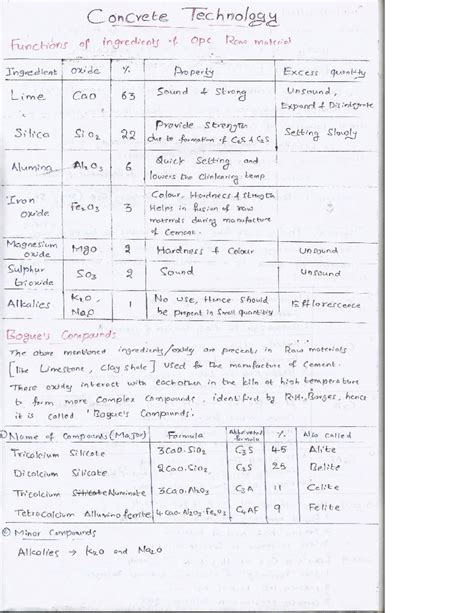 Concrete Technology
Functions of ingredients of OPC Raw material
Ingredient Oxide % Property Excess quantity
Lime CaO 63 Sound & Strong Unsound, Expand & Disintegrate
Silica SiO2 22 Provide Strength due to formation of C2S & C3S Setting Slowly
Alumina Al2O3 6 Quick Setting and lowers the clinkering temp
Iron oxide Fe2O3 3 Colour, Hardness & Strength Helps in fusion of raw materials during manufacture of Cement.
Magnesium oxide MgO 2 Hardness & Colour Unsound
Sulphur trioxide SO3 2 Sound Unsound
Alkalies K2O, Na2O 1 No use, Hence Should be present in Small quantity Efflorescence
Bogue's Compounds
The above mentioned ingredients/oxides are presents in Raw materials
[like Limestone, clay shale] used for the manufacture of Cement.
These oxides interact with eachother in the kiln at high temperature
to form more Complex Compounds, identified by R.H. Bogues, hence
it is called 'Bogue's Compounds.
① Name of Compounds (Major) Formula Abbreviated formula % Also called
Tricalcium Silicate 3CaO.SiO2 C3S 45 Alite
Dicalcium Silicate 2CaO.SiO2 C2S 25 Belite
Tricalcium Aluminate 3CaO.Al2O3 C3A 11 Celite
Tetracalcium Allumino ferrite 4CaO.Al2O3.Fe2O3 C4AF 9 Felite
② Minor Compounds
Alkalies → K2O and Na2O